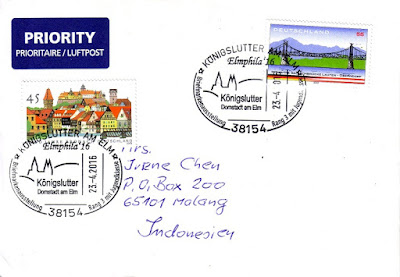 PRIORITY
PRIORITAIRE / LUFTPOST
DEUTSCHLAND
KÖNIGSLUTTER AM ELM
Elmphila'16
Königslutter
Domstadt am Elm
23.-4.
Briefmarkenausstellung
38154
Rang 3 mit
45
KÖNIGSLUTTER AM ELM
Elmphila'16
Königslutter
Domstadt am Elm
23.-4.2016
Briefmarkenausstellung
38154
Rang 3 mit
Mrs.
Irene Chen
P.O. Box 200
65101 Malang
Indonesien